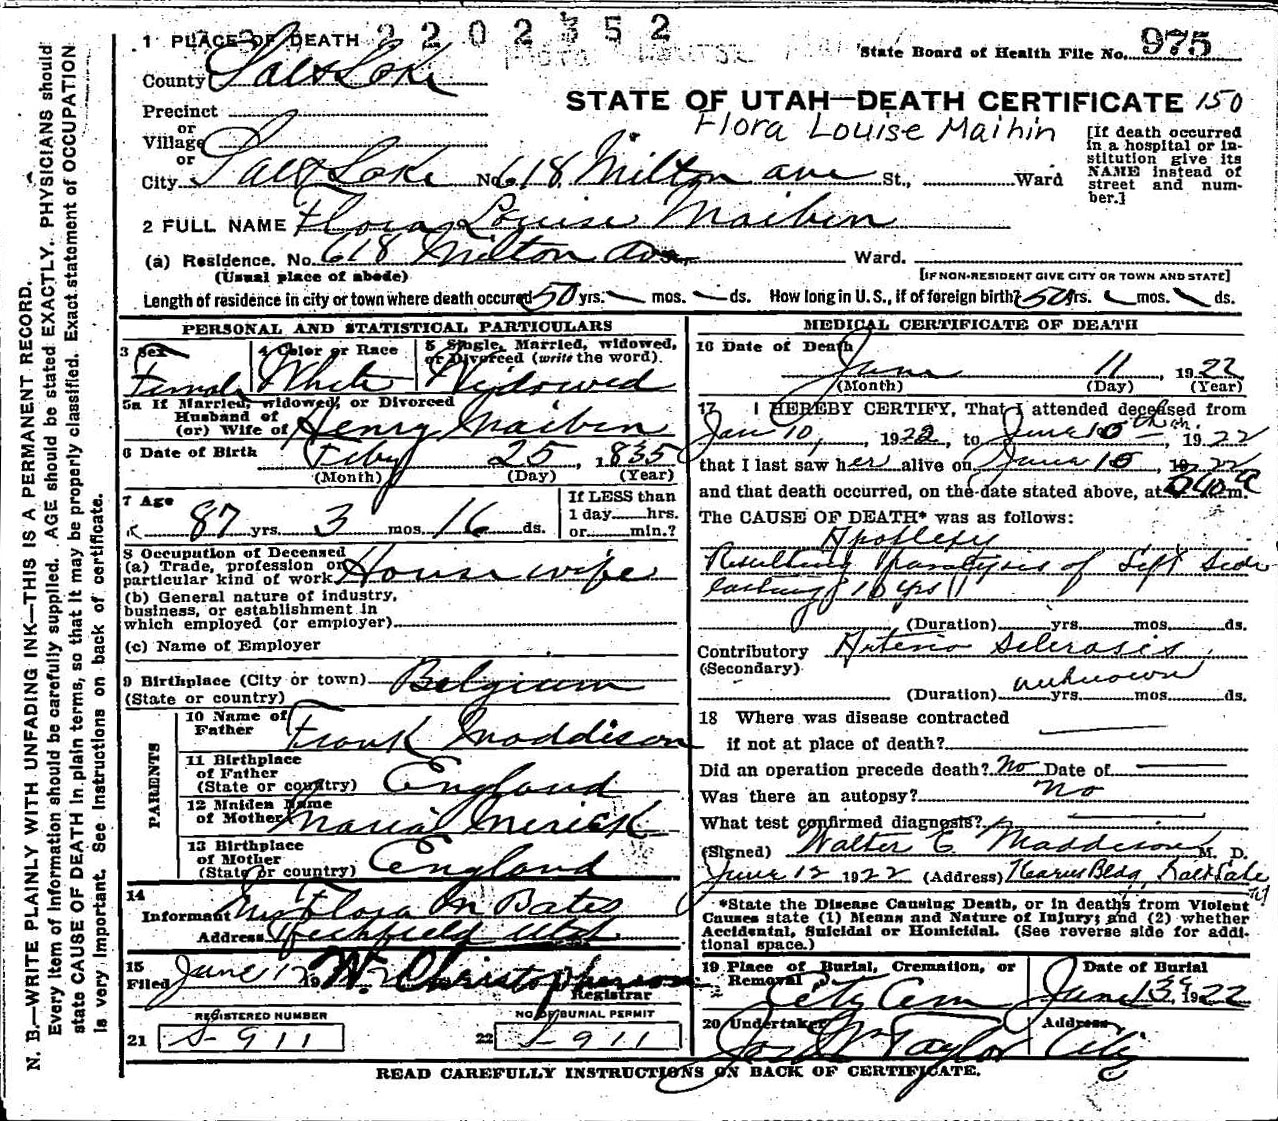 2202352
975
1 PLACE OF DEATH
State Board of Health File No. 975
County Salt Lake
STATE OF UTAH—DEATH CERTIFICATE 150
Precinct
or
Village
or
City Salt Lake No. 618 Milton ave St., Ward
Flora Louise Maihin
[If death occurred in a hospital or institution give its NAME instead of street and number.]
2 FULL NAME Flora Louise Maiben
(a) Residence. No. 618 Milton ave Ward.
(Usual place of abode) [IF NON-RESIDENT GIVE CITY OR TOWN AND STATE]
Length of residence in city or town where death occured 50 yrs. mos. ds. How long in U.S., if of foreign birth? 50 yrs. mos. ds.
PERSONAL AND STATISTICAL PARTICULARS
3 Sex Female
4 Color or Race White
5 Single, Married, widowed, or Divorced (write the word). Widowed
5a If Married, widowed, or Divorced
Husband of
(or) Wife of Henry Maiben
6 Date of Birth Feby 25, 1835
(Month) (Day) (Year)
7 Age 87 yrs. 3 mos. 16 ds.
If LESS than
1 day hrs.
or min.?
8 Occupation of Deceased
(a) Trade, profession or
particular kind of work House wife
(b) General nature of industry,
business, or establishment in
which employed (or employer)
(c) Name of Employer
9 Birthplace (City or town) Belgium
(State or country)
PARENTS
10 Name of
Father Frank Maddison
11 Birthplace
of Father
(State or country) England
12 Maiden Name
of Mother Maria Merick
13 Birthplace
of Mother
(State or country) England
14
Informant Mrs Flora M Bates
Address Richfield Utah
15
Filed June 12 19 W. Christopherson
Registrar
REGISTERED NUMBER
21 S-911
NO. OF BURIAL PERMIT
22 S-911
MEDICAL CERTIFICATE OF DEATH
16 Date of Death June 11, 1922
(Month) (Day) (Year)
17 I HEREBY CERTIFY, That I attended deceased from
Jan 10, 1922, to June 10th, 1922
that I last saw her alive on June 10, 1922
and that death occurred, on the date stated above, at 240 a m.
The CAUSE OF DEATH* was as follows:
Apoplexy
Resulting Paralysis of Left Side
lasting 10 yrs
(Duration) yrs. mos. ds.
Contributory Arterio Sclerosis
(Secondary)
unknown
(Duration) yrs. mos. ds.
18 Where was disease contracted
if not at place of death?
Did an operation precede death? No Date of
Was there an autopsy? No
What test confirmed diagnosis?
(Signed) Walter E Maddison M. D.
June 12 1922 (Address) Kearns Bldg, Salt Lake
*State the Disease Causing Death, or in deaths from Violent
Causes state (1) Means and Nature of Injury; and (2) whether
Accidental, Suicidal or Homicidal. (See reverse side for addi-
tional space.)
19 Place of Burial, Cremation, or
Removal City Cem
Date of Burial
June 13, 1922
20 Undertaker Jos Wm Taylor
Address City
READ CAREFULLY INSTRUCTIONS ON BACK OF CERTIFICATE.
N. B.—WRITE PLAINLY WITH UNFADING INK—THIS IS A PERMANENT RECORD.
Every item of information should be carefully supplied. AGE should be stated EXACTLY. PHYSICIANS should
state CAUSE OF DEATH in plain terms, so that it may be properly classified. Exact statement of OCCUPATION
is very important. See instructions on back of certificate.